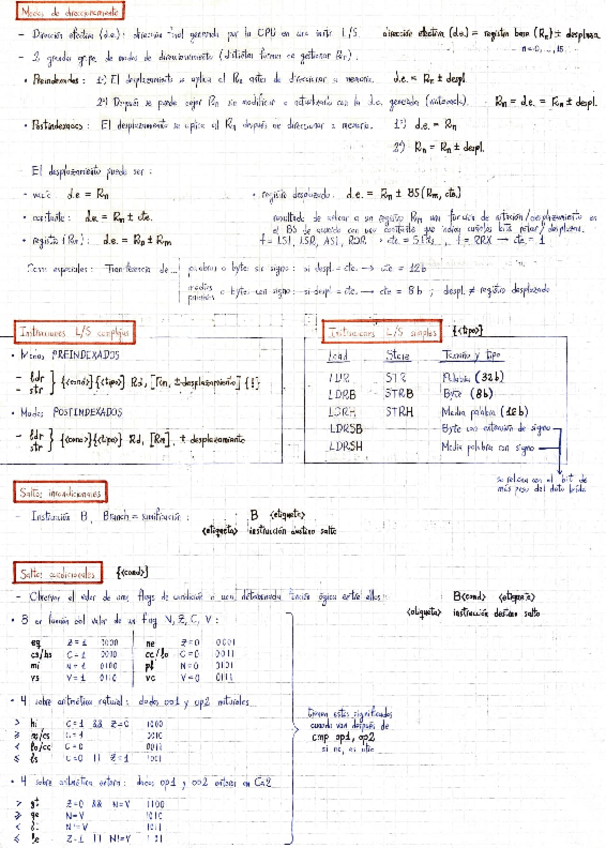 Modos de direccionamiento
- Dirección efectiva (d.e.): dirección final generada por la CPU en una instr. L/S. dirección efectiva (d.e.) = registro base (Rn) ± desplaza.
n=0,..,15
- 2 grandes grupos de modos de direccionamiento (distintas formas de gestionar Rn).
• Preindexados: 1º) El desplazamiento se aplica al Rn antes de direccionar a memoria. d.e. = Rn ± despl
2º) Después se puede dejar Rn sin modificar o actualizarlo con la d.e. generada Rn = d.e. = Rn ± despl.
• Postindexados: El desplazamiento se aplica al Rn después de direccionar a memoria. 1º) d.e. = Rn
2º) Rn = Rn ± despl.
- El desplazamiento puede ser:
• vacío d.e = Rn
• registro desplazado: d.e. = Rn ± BS(Rm, cte.)
• constante: d.e = Rn ± cte.
resultado de aplicar a un registro Rm una función de rotación/desplazamiento en
el BS de acuerdo con una constante que indica cuántos bits rotar/desplaza.
• registro (Rm): d.e. = Rn ± Rm
f = LSL, LSR, ASR, ROR → cte = , f = RRX → cte = 1
Casos especiales: Transferencia de palabras o bytes sin signo: si despl = cte. → cte = 12b
medias palabras o bytes con signo: si despl = cte. → cte = 8b ; despl. ≠ registro desplazado
Instrucciones L/S complejas
Instrucciones L/S simples {<tipo>}
• Modos PREINDEXADOS
- ldr
- str } {<cond>}{<tipo>} Rd, [Rn, ±desplazamiento] {!}
• Modos POSTINDEXADOS
- ldr
str } {<cond>}{<tipo>} Rd, [Rn], ± desplazamiento
Load Store Tamaño y tipo
LDR STR Palabra (32b)
LDRB STRB Byte (8b)
LDRH STRH Media palabra (16b)
LDRSB Byte con extensión de signo
LDRSH Media palabra con signo
se rellena con el bit de
más peso del dato leído
Saltos incondicionales
- Instrucción B, Branch = ramificación: B <etiqueta>
<etiqueta> instrucción destino salto
Saltos condicionados {<cond>}
- Chequean el valor de unas flags de condición o una determinada función lógica entre ellos: B<cond> <etiqueta>
<etiqueta> instrucción destino salto
• 8 en función del valor de un flag N, Z, C, V:
eq Z=1 0000 ne Z=0 0001
cs/hs C=1 0010 cc/lo C=0 0011
mi N=1 0100 pl N=0 0101
vs V=1 0110 vc V=0 0111
• 4 sobre aritmética natural: dados op1 y op2 naturales
> hi C=1 && Z=0 1000
≥ hs/cs C=1 0010
< lo/cc C=0 0011
≤ ls C=0 || Z=1 1001
Tienen estos significados
cuando van después de
cmp op1, op2
si no, es otro
• 4 sobre aritmética entera: dados op1 y op2 enteros en Ca2
> gt Z=0 && N=V 1100
≥ ge N=V 1010
< lt N!=V 1011
≤ le Z=1 || N!=V 1101